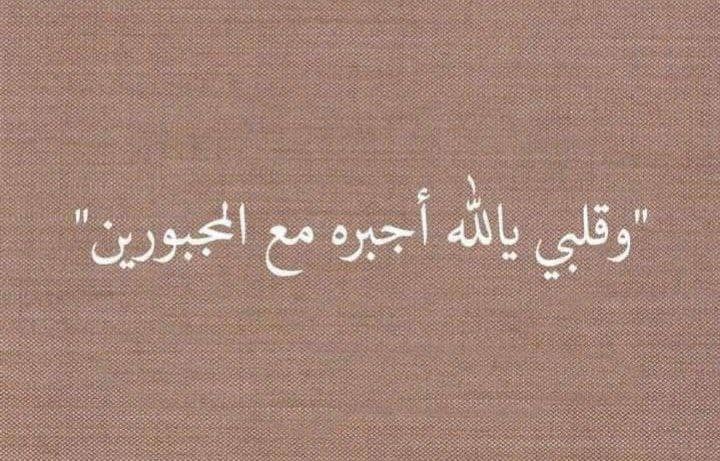 "وقلبي يالله أجبره مع المجبورين"